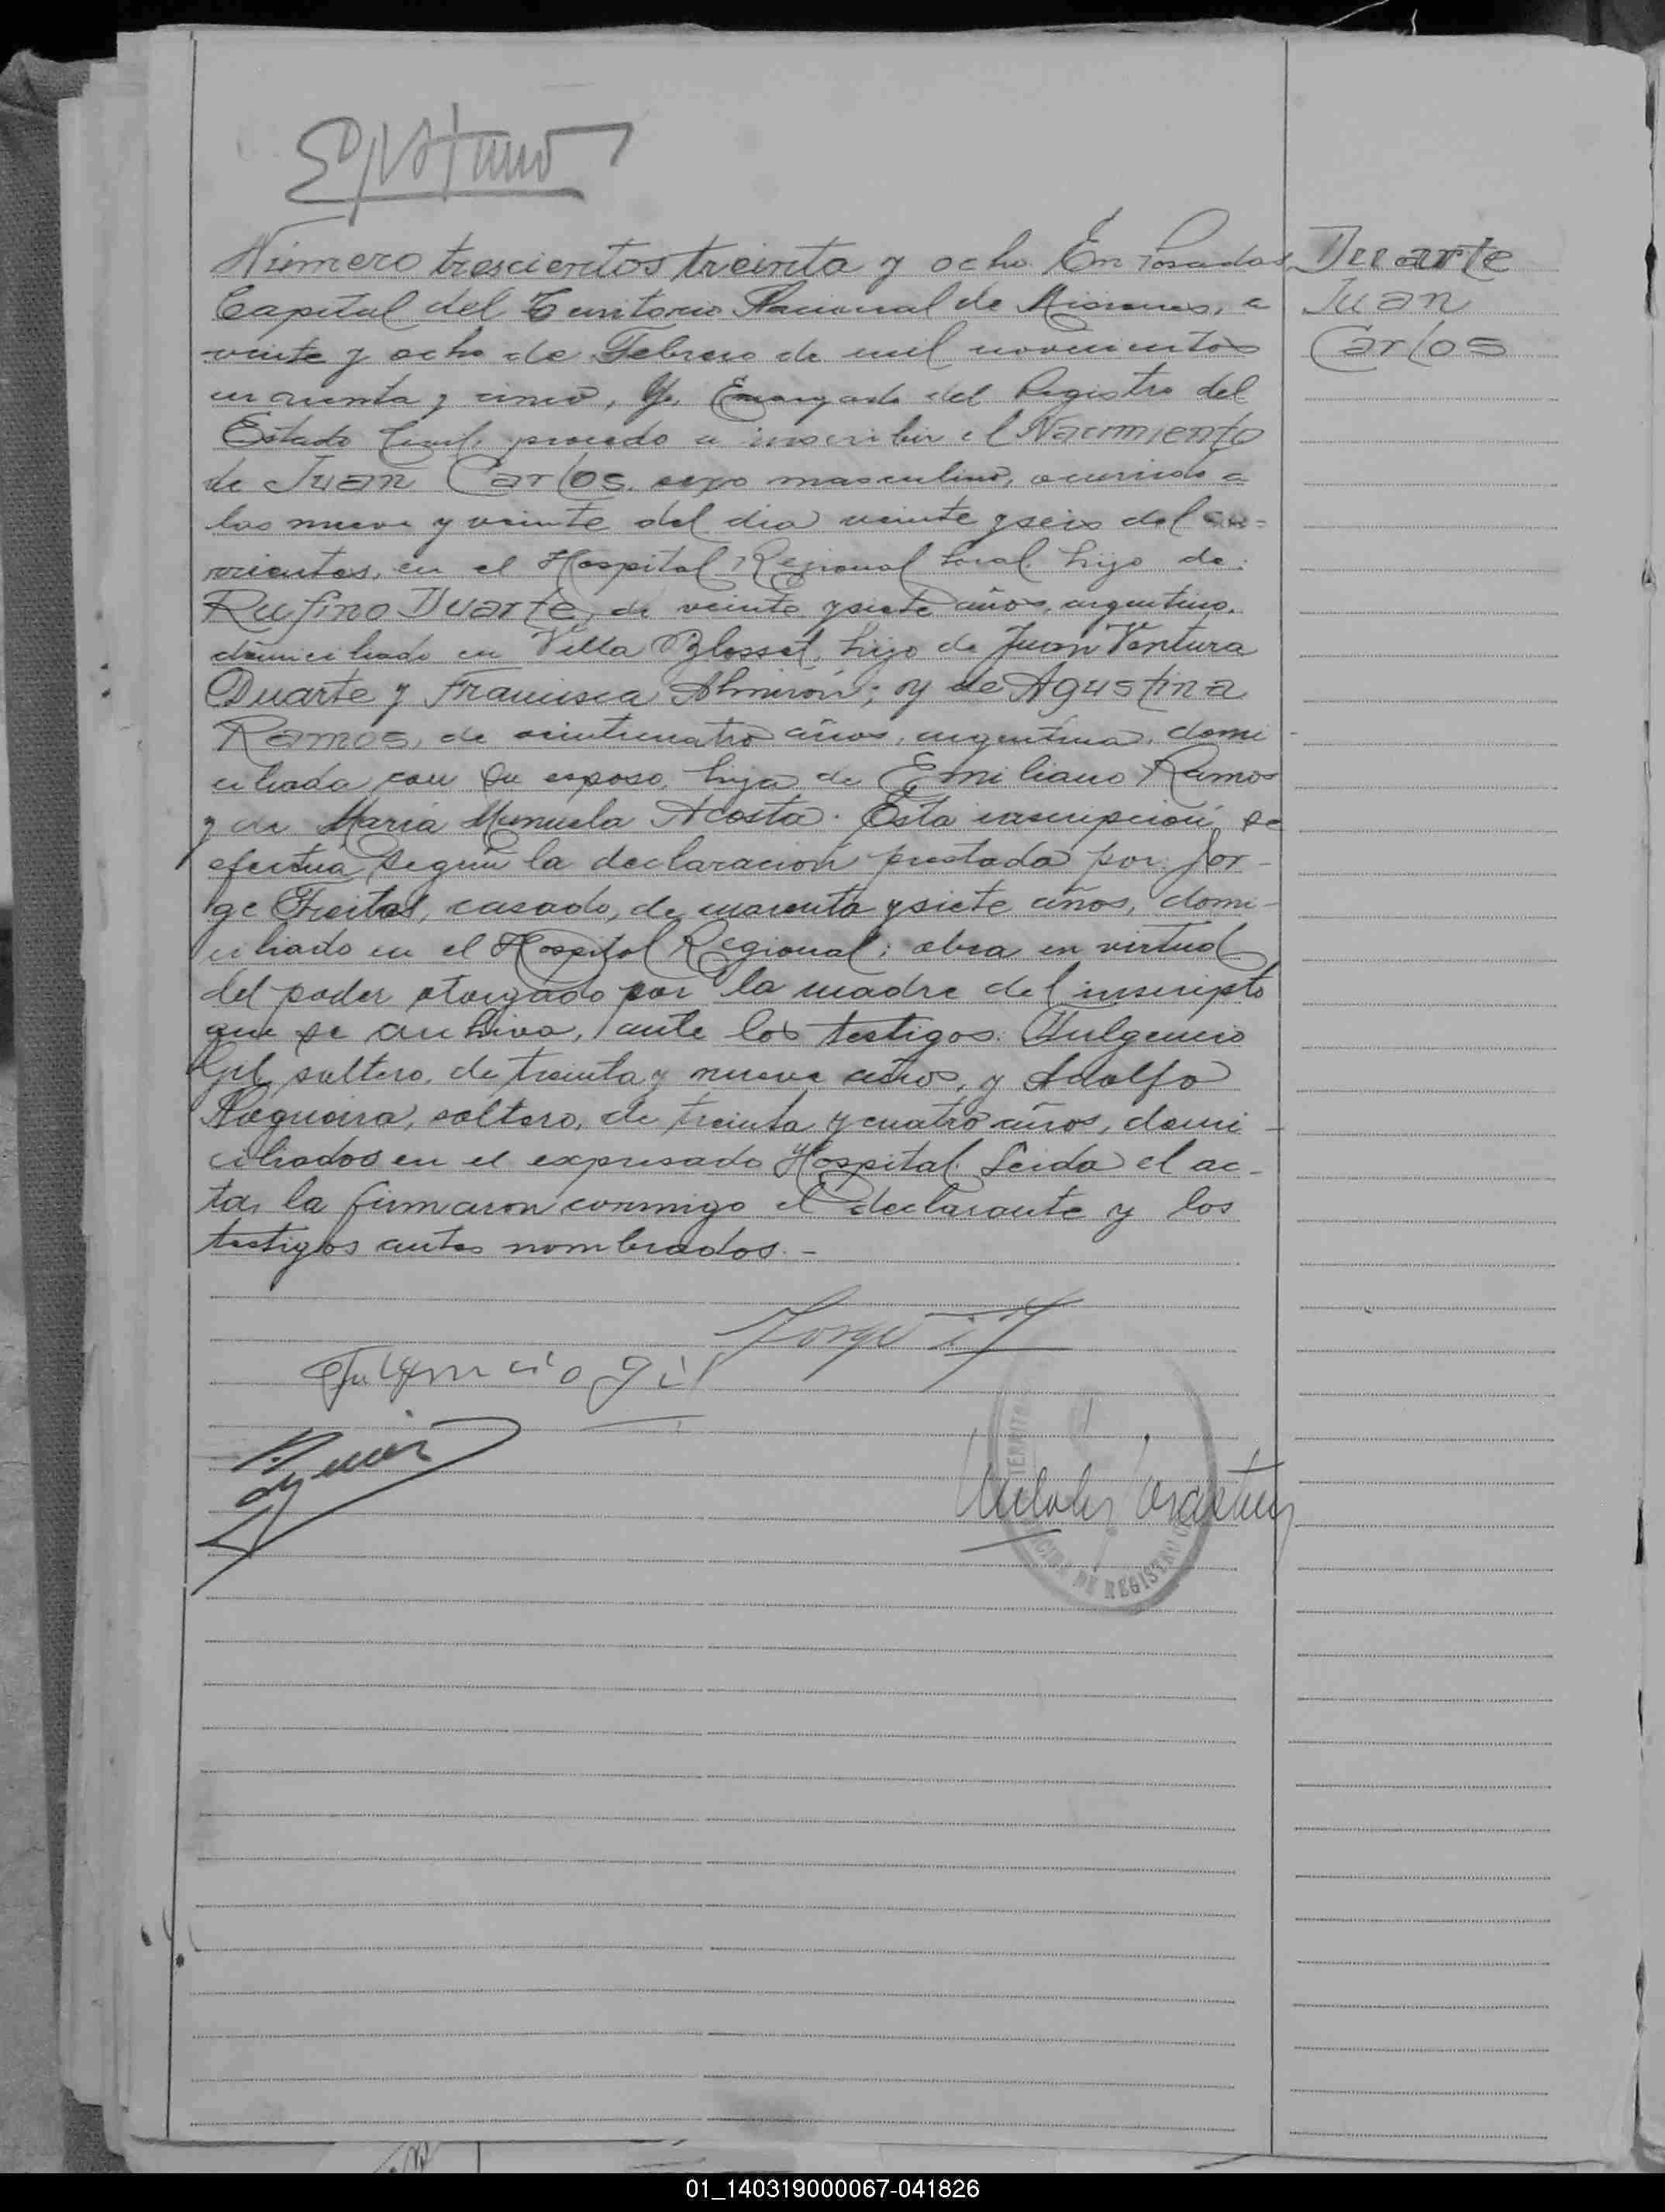 Número trescientos treinta y ocho En Posadas
Capital del Territorio Nacional de Misiones, a
veinte y ocho de Febrero de mil novecientos
cincuenta y cinco, Yo, Encargado del Registro del
Estado Civil, procedo a inscribir el Nacimiento
de Juan Carlos, sexo masculino, ocurrido a
las nueve y veinte del dia veinte y seis del co=
rrientes, en el Hospital Regional local. hijo de:
Rufino Duarte, de veinte y siete años, argentino,
domiciliado en Villa Blosset, hijo de Juan Ventura
Duarte y Francisca Almirón; y de Agustina
Ramos, de veinticuatro años, argentina, domi-
ciliada con su esposo, hija de Emiliano Ramos
y de María Manuela Acosta. Esta inscripción se
efectua según la declaración prestada por: Jor-
ge Freitas, casado, de cuarenta y siete años, domi-
ciliado en el Hospital Regional; obra en virtud
del poder otorgado por la madre del inscripto
que se archiva, ante los testigos: Fulgencio
Gil, soltero, de treinta y nueve años, y Adolfo
Nogueira, soltero, de treinta y cuatro años, domi-
ciliados en el expresado Hospital. Leida el ac-
ta, la firmaron conmigo el declarante y los
testigos antes nombrados.-
Duarte
Juan
Carlos
Jorge
Fulgencio Gil
DE REGISTRO
01_140319000067-041826